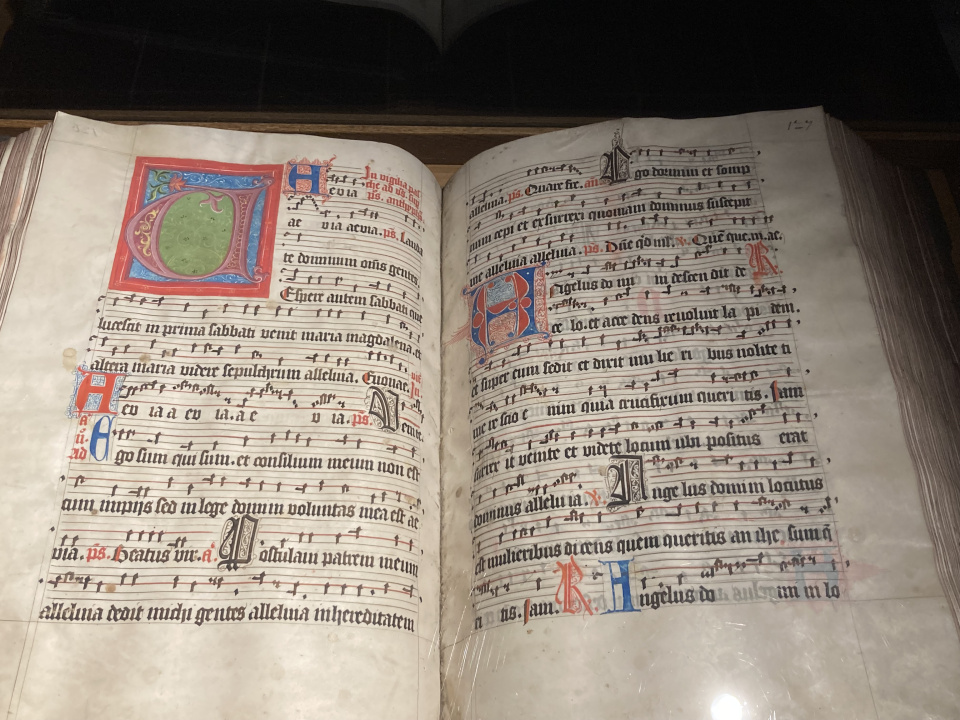 Aevia
In vigilia pas
che ad
ps. antiphona
ae via aevia. ps. Lauda
te dominum oms gentes.
Espere autem sabbati que
lucescit in prima sabbati venit maria magdalena. et
altera maria videre sepulchrum alleluia. Euouae.
ev ia a ev ia. a e v ia. ps. Venite.
Ego sum qui sum. et consilium meum non est
cum impijs sed in lege domini voluntas mea est ae
via. ps. Beatus vir. a Postulavi patrem meum
alleluia dedit michi gentes alleluia in hereditatem
127
alleluia. ps. Quare fre. an Ego dormivi et somp
num cepi et exsurrexi quoniam dominus suscepit
me alleluia alleluia. ps. Dne qd mlt. Que que. m. ae. R
Angelus do mi ni descen dit de
ce lo. et acce dens revoluit la pi dem.
et super eum sedit et dixit mu lie ri bus nolite ti
me re scio e nim quia crucifixum queri tis. Iam
surre it venite et videte locum ubi positus erat
dominus allelu ia. Ange lus domini locutus
est mulieribus di cens quem queritis an ihc, sum q
ri tis. Iam. R Angelus do mi ni lo